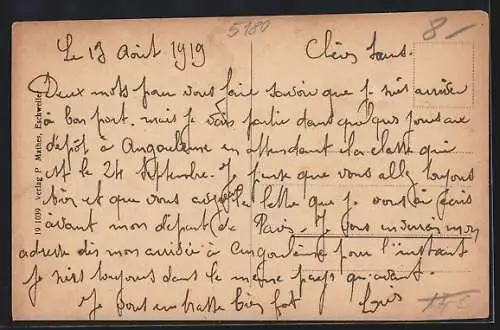 5180
8-
Le 13 Août 1919
Chers
Deux mots pour vous faire savoir que je suis arrivé
à bon port. mais je vais partir dans quelques jours au
dépôt à Angoulême en attendant la classe qui
est le 24 Septembre. Je pense que vous allez toujours
bien et que vous la lettre que je vous ai écris
avant mon départ de Paris. Je vous mon
adresse dès mon arrivée à Angoulême pour l'instant
je suis toujours dans le même pays qu'avant.
Je vous embrasse bien fort
19 1039 Verlag P. Mathes, Eschweiler